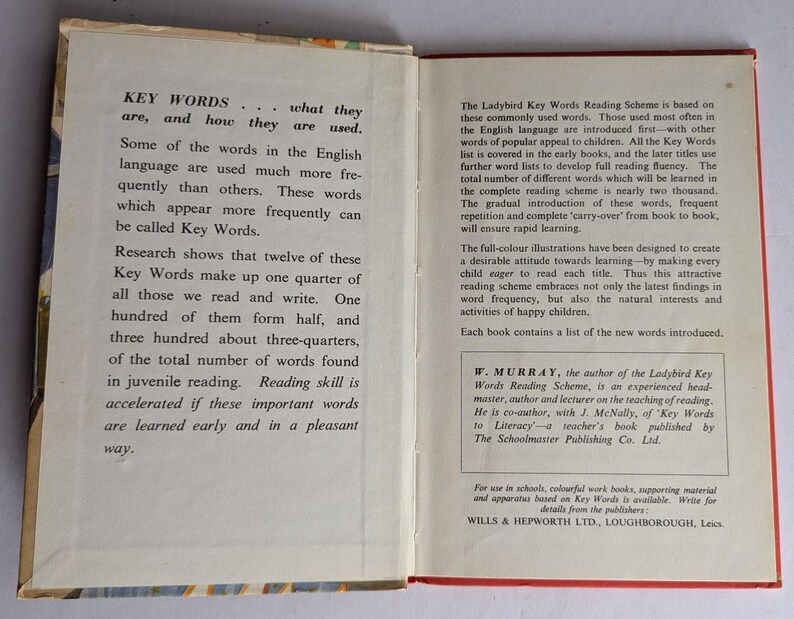 KEY WORDS . . . what they
are, and how they are used.
Some of the words in the English
language are used much more fre-
quently than others. These words
which appear more frequently can
be called Key Words.
Research shows that twelve of these
Key Words make up one quarter of
all those we read and write. One
hundred of them form half, and
three hundred about three-quarters,
of the total number of words found
in juvenile reading. Reading skill is
accelerated if these important words
are learned early and in a pleasant
way.
The Ladybird Key Words Reading Scheme is based on
these commonly used words. Those used most often in
the English language are introduced first—with other
words of popular appeal to children. All the Key Words
list is covered in the early books, and the later titles use
further word lists to develop full reading fluency. The
total number of different words which will be learned in
the complete reading scheme is nearly two thousand.
The gradual introduction of these words, frequent
repetition and complete 'carry-over' from book to book,
will ensure rapid learning.
The full-colour illustrations have been designed to create
a desirable attitude towards learning—by making every
child eager to read each title. Thus this attractive
reading scheme embraces not only the latest findings in
word frequency, but also the natural interests and
activities of happy children.
Each book contains a list of the new words introduced.
W. MURRAY, the author of the Ladybird Key
Words Reading Scheme, is an experienced head-
master, author and lecturer on the teaching of reading.
He is co-author, with J. McNally, of 'Key Words
to Literacy'—a teacher's book published by
The Schoolmaster Publishing Co. Ltd.
For use in schools, colourful work books, supporting material
and apparatus based on Key Words is available. Write for
details from the publishers:
WILLS & HEPWORTH LTD., LOUGHBOROUGH, Leics.